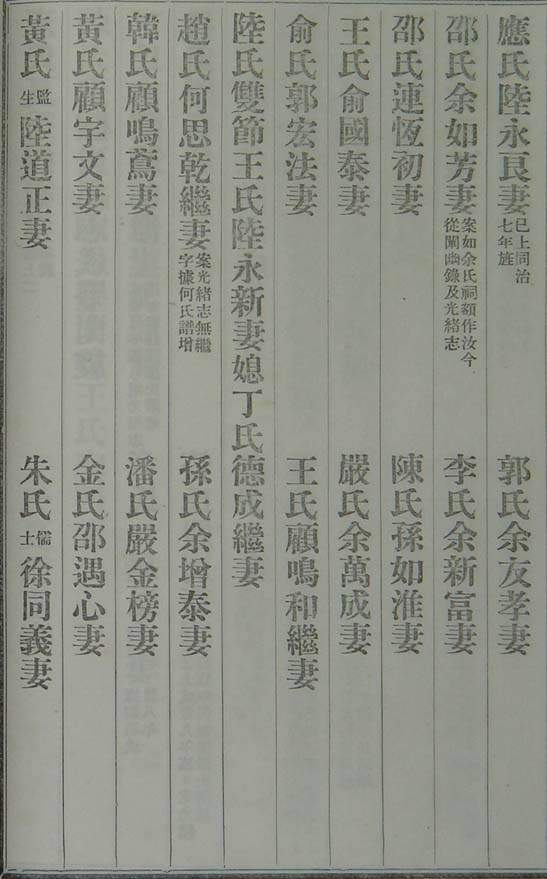 應氏陸永良妻已上同治七年旌 郭氏余友孝妻
邵氏余如芳妻案如余氏祠額作汝今從闡幽錄及光緒志 李氏余新富妻
邵氏連恆初妻 陳氏孫如淮妻
王氏俞國泰妻 嚴氏余萬成妻
俞氏郭宏法妻 王氏顧鳴和繼妻
陸氏雙節王氏陸永新妻媳丁氏德成繼妻
趙氏何思乾繼妻案光緒志無繼字據何氏譜增 孫氏余增泰妻
韓氏顧鳴鳶妻 潘氏嚴金榜妻
黃氏顧宇文妻 金氏邵遇心妻
黃氏監生陸道正妻 朱氏儒士徐同義妻